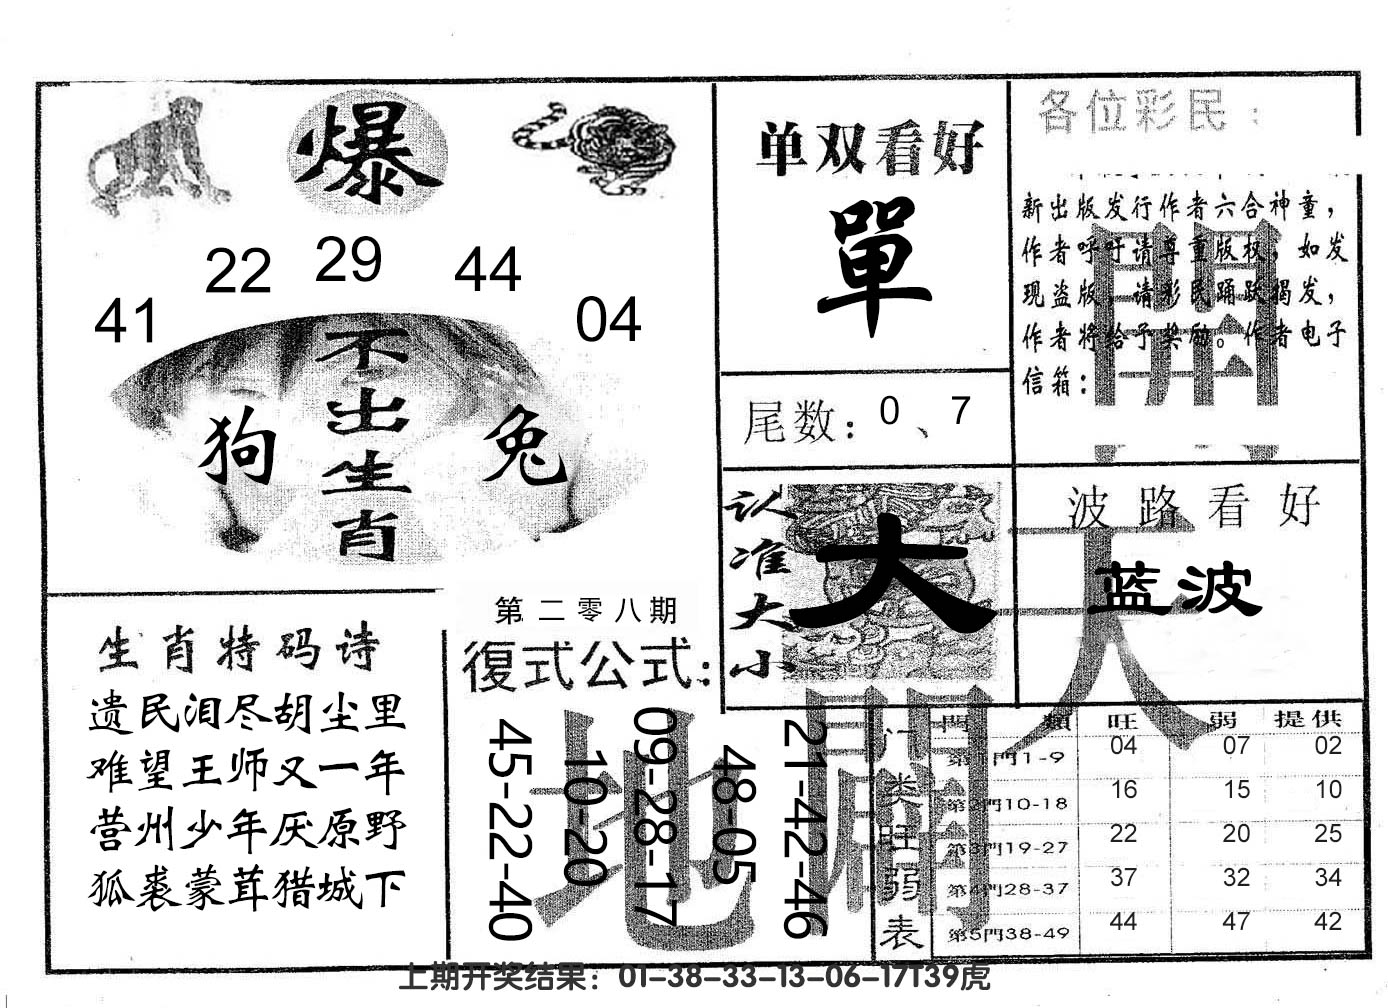 爆
22 29 44
41 04
不出生肖
狗 兔
单双看好
單
尾数：0、7
各位彩民：
新出版发行作者六合神童，
作者呼吁请尊重版权，如发
现盗版，请彩民踊跃揭发，
作者将给予奖励。作者电子
信箱：
认准大小
大
波路看好
蓝波
天
開
生肖特码诗
遗民泪尽胡尘里
难望王师又一年
营州少年厌原野
狐裘蒙茸猎城下
第二零八期
復式公式：
45-22-40
10-20
09-28-17
48-05
21-42-46
地
開
门类旺弱表
門類 旺 弱 提供
第1門1-9 04 07 02
第2門10-18 16 15 10
第3門19-27 22 20 25
第4門28-37 37 32 34
第5門38-49 44 47 42
上期开奖结果：01-38-33-13-06-17T39虎